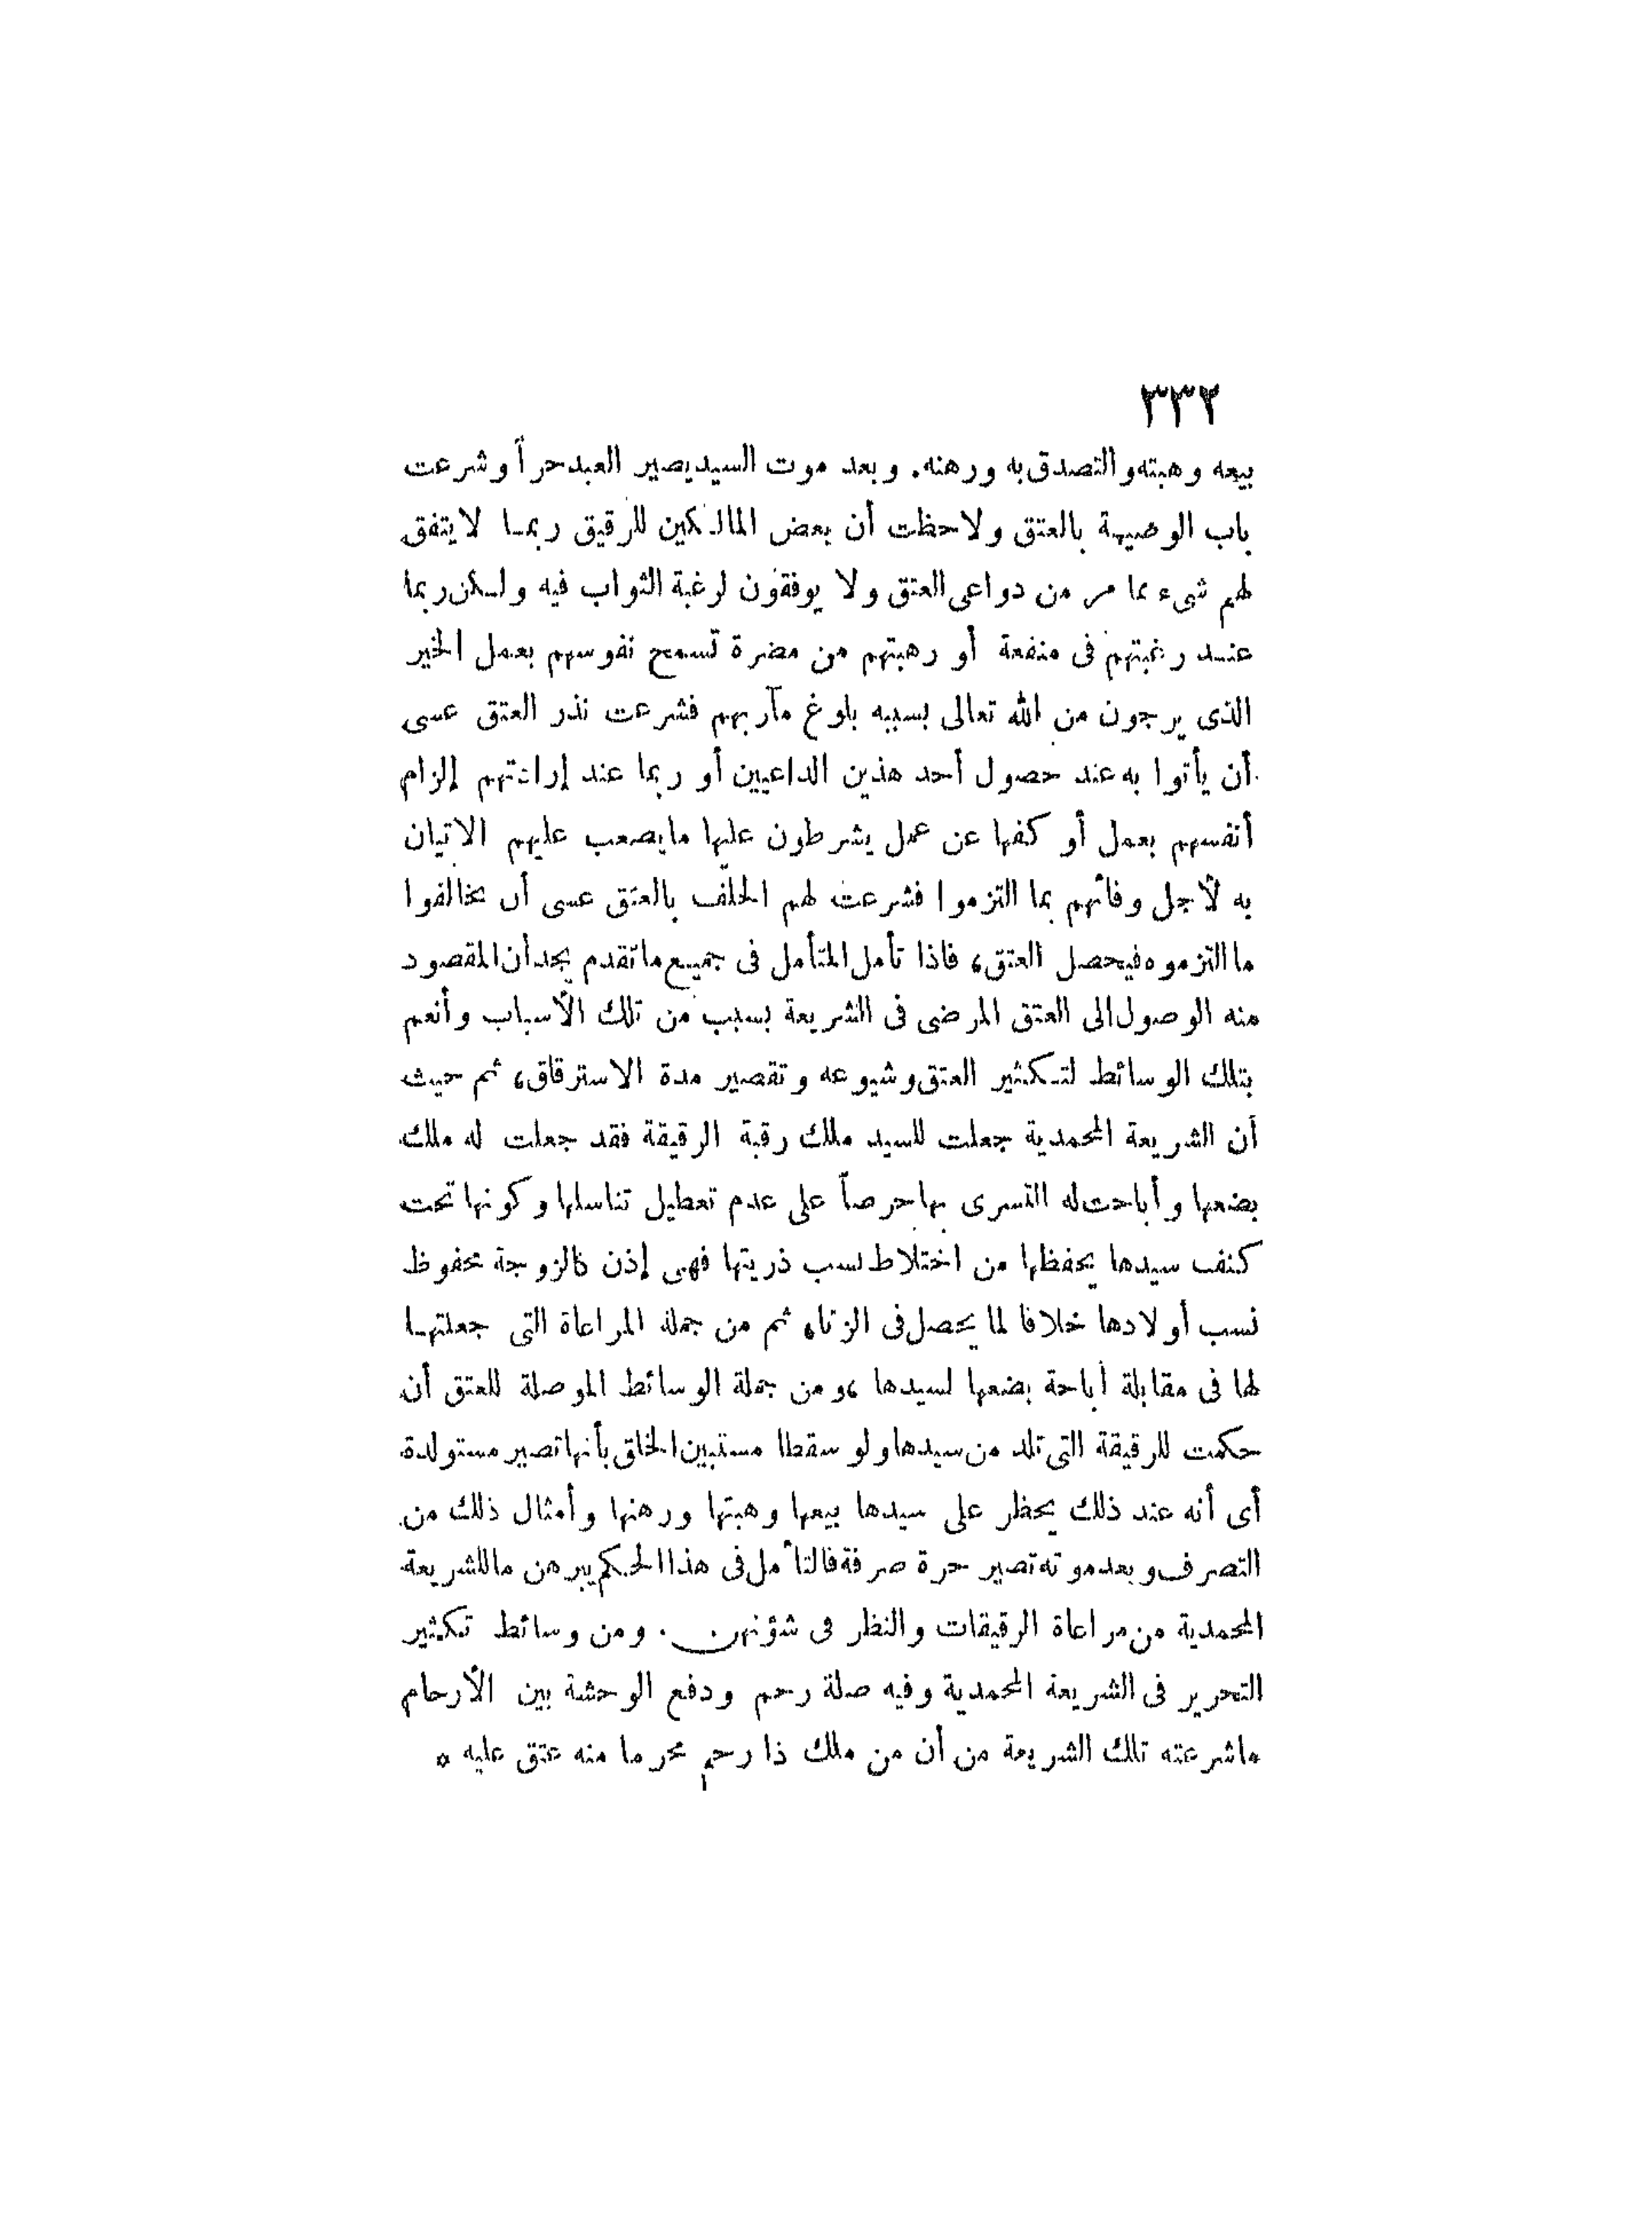 ٣٣٢
بيعه وهبته والتصدق به ورهنه. وبعد موت السيد يصير العبد حراً وشرعت
باب الوصية بالعتق ولاحظت أن بعض المالكين للرقيق ربما لا يتفق
لهم شيء مما مر من دواعى العتق ولا يوفقون لرغبة الثواب فيه ولكن ربما
عند رغبتهم فى منفعة أو رهبتهم من مضرة تسمح نفوسهم بعمل الخير
الذى يرجون من الله تعالى بسببه بلوغ مآربهم فشرعت نذر العتق عسى
أن يأتوا به عند حصول أحد هذين الداعيين أو ربما عند إرادتهم إلزام
أنفسهم بعمل أو كفها عن عمل يشرطون عليها ما يصعب عليهم الاتيان
به لأجل وفائهم بما التزموا فشرعت لهم الحلف بالعتق عسى أن يخالفوا
ما التزموه فيحصل العتق، فاذا تأمل المتأمل فى جميع ما تقدم يجد أن المقصود
منه الوصول الى العتق المرضى فى الشريعة بسبب من تلك الأسباب وأنعم
بتلك الوسائط لتكثير العتق وشيوعه وتقصير مدة الاسترقاق، ثم حيث
أن الشريعة المحمدية جعلت للسيد ملك رقبة الرقيقة فقد جعلت له ملك
بضعها وأباحت له التسرى بها حرصاً على عدم تعطيل تناسلها وكونها تحت
كنف سيدها يحفظها من اختلاط نسب ذريتها فهى إذن كالزوجة محفوظ
نسب أولادها خلافا لما يحصل فى الزنا، ثم من جملة المراعاة التى جعلتها
لها فى مقابلة أباحة بضعها لسيدها، ومن جملة الوسائط الموصلة للعتق أن
حكمت للرقيقة التى تلد من سيدها ولو سقطا مستبين الخلق بأنها تصير مستولدة
أى أنه عند ذلك يحظر على سيدها بيعها وهبتها ورهنها وأمثال ذلك من
التصرف وبعد موته تصير حرة صرفة فالتأمل فى هذا الحكم يبرهن ما للشريعة
المحمدية من مراعاة الرقيقات والنظر فى شؤنهن. ومن وسائط تكثير
التحرير فى الشريعة المحمدية وفيه صلة رحم ودفع الوحشة بين الأرحام
ما شرعته تلك الشريعة من أن من ملك ذا رحم محرما منه عتق عليه ه